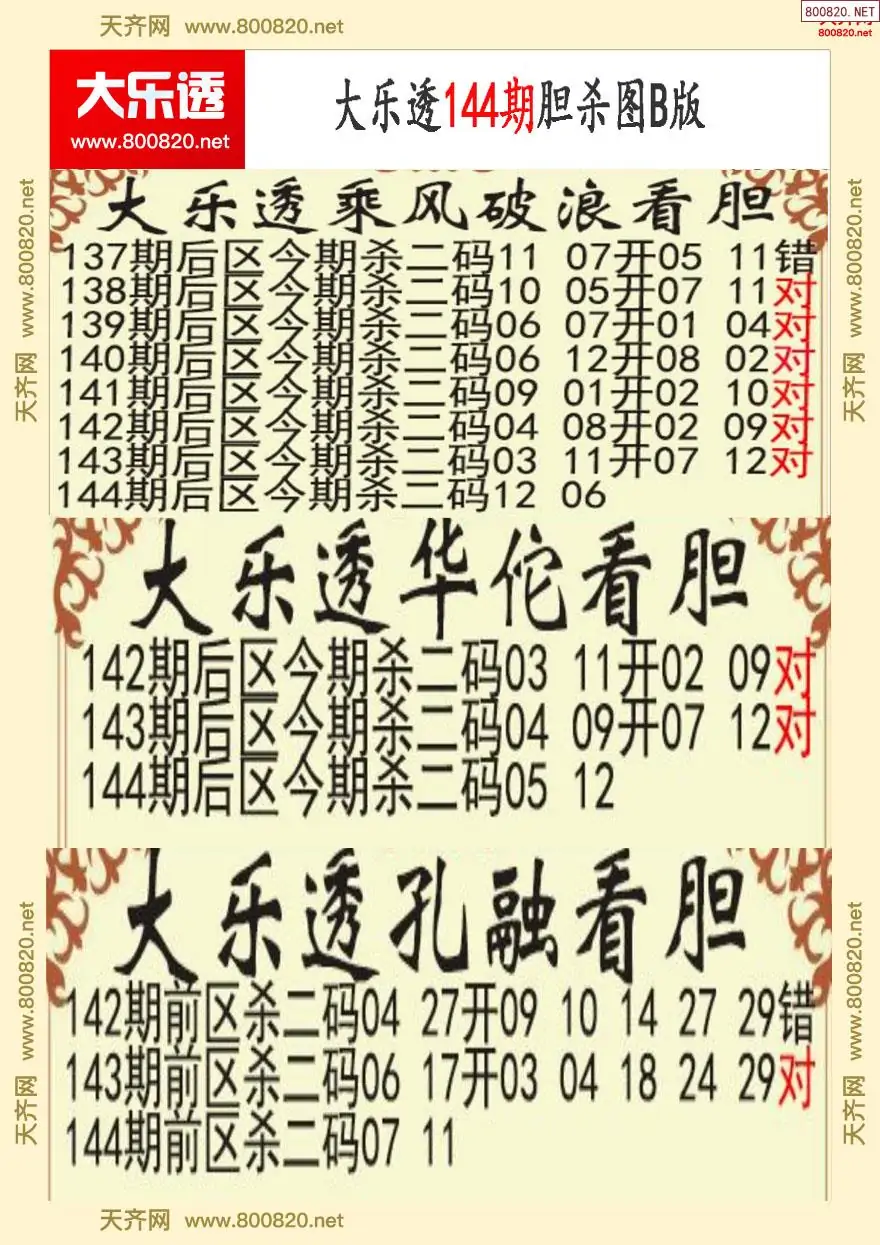 天齐网 www.800820.net
800820.NET
800820.net
大乐透
www.800820.net
大乐透144期胆杀图B版
大乐透乘风破浪看胆
137期后区今期杀二码11 07开05 11错
138期后区今期杀二码10 05开07 11对
139期后区今期杀二码06 07开01 04对
140期后区今期杀二码06 12开08 02对
141期后区今期杀二码09 01开02 10对
142期后区今期杀二码04 08开02 09对
143期后区今期杀二码03 11开07 12对
144期后区今期杀二码12 06
大乐透华佗看胆
142期后区今期杀二码03 11开02 09对
143期后区今期杀二码04 09开07 12对
144期后区今期杀二码05 12
大乐透孔融看胆
142期前区杀二码04 27开09 10 14 27 29错
143期前区杀二码06 17开03 04 18 24 29对
144期前区杀二码07 11
天齐网 www.800820.net
天齐网 www.800820.net
天齐网 www.800820.net
天齐网 www.800820.net
天齐网 www.800820.net